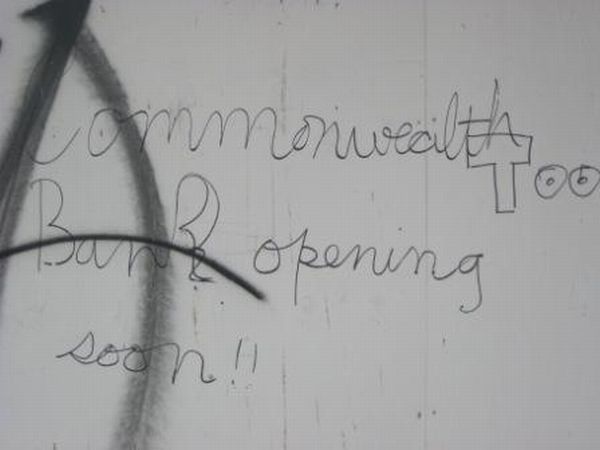 Commonwealth
Too
Bank opening
soon!!